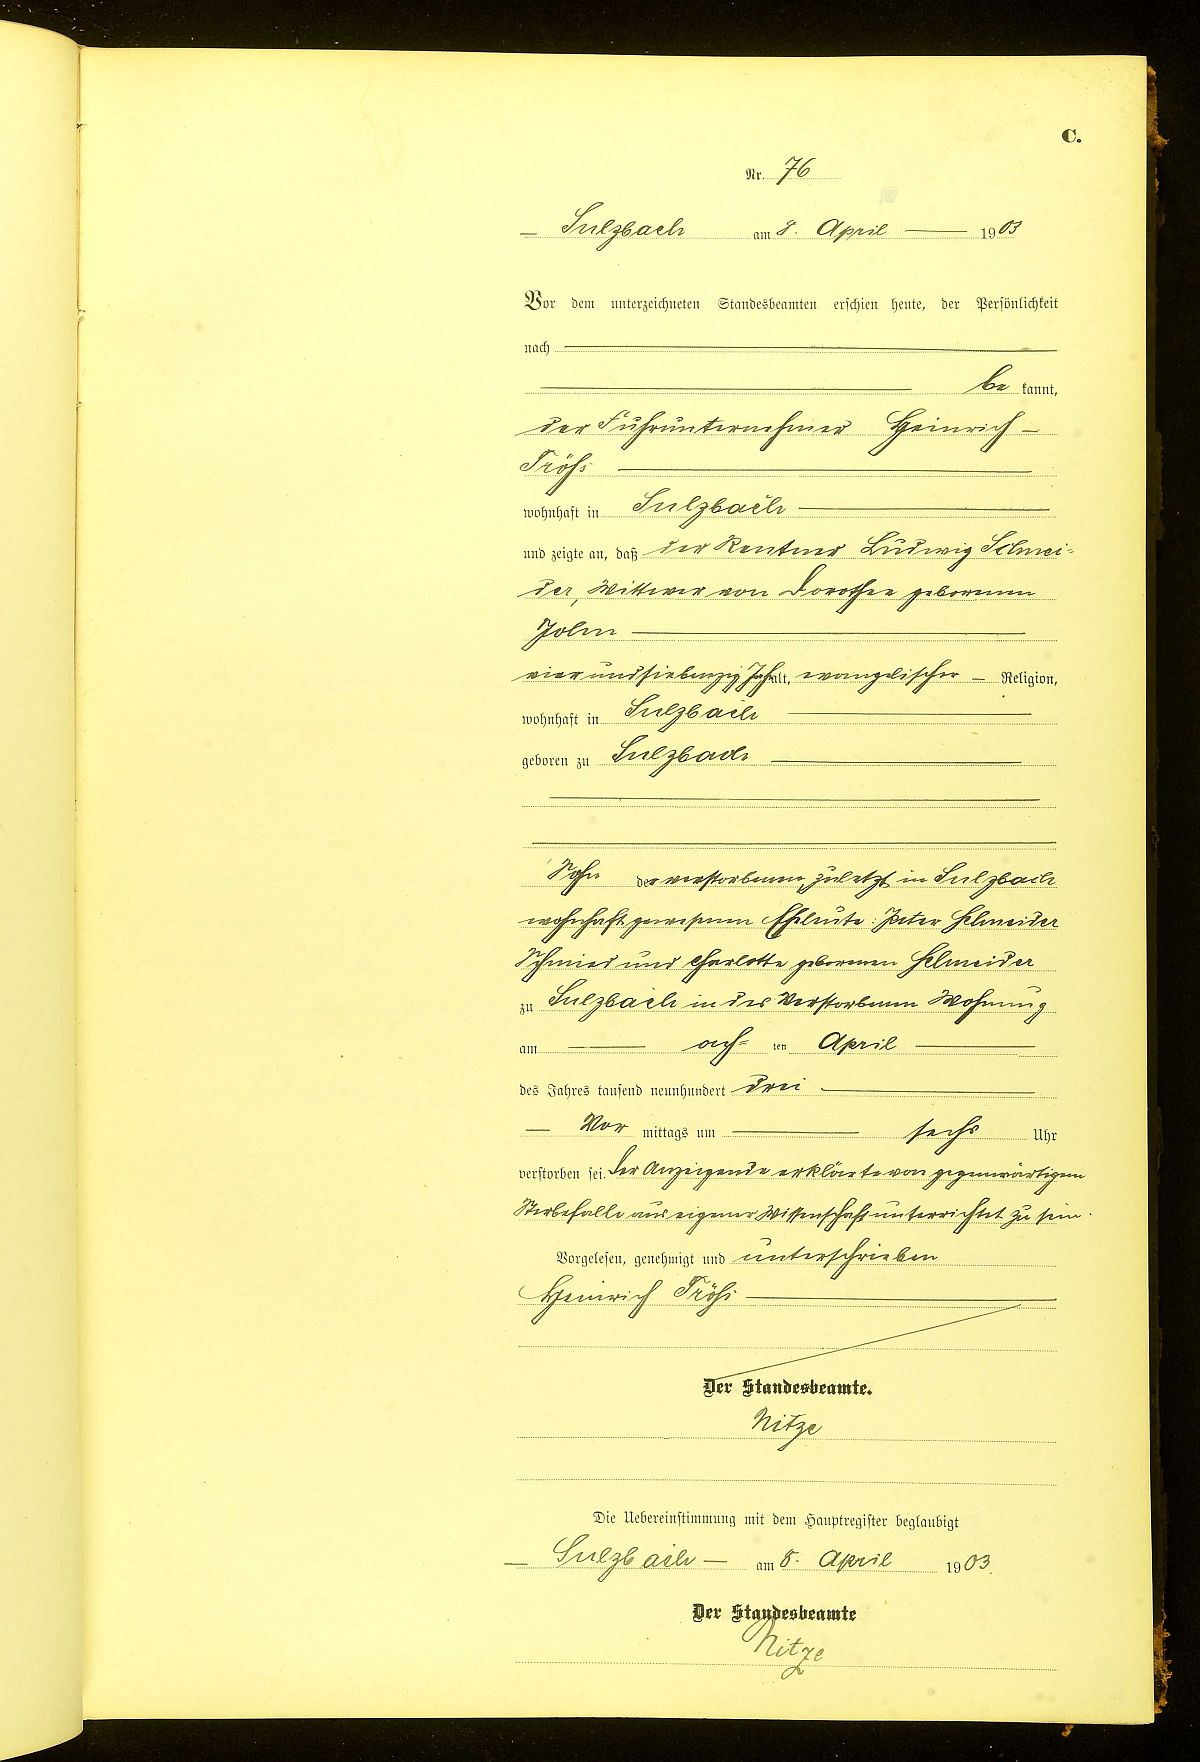 C.
Nr. 76
Sulzbach am 8. April 1903
Vor dem unterzeichneten Standesbeamten erschien heute, der Persönlichkeit
nach
be kannt,
der Fuhrunternehmer Heinrich
Fröhs
wohnhaft in Sulzbach
und zeigte an, daß der Rentner Ludwig Schnei-
der, Wittwer von Dorothee geborenen
vierundsiebenzig Jahr alt, evangelischer Religion,
wohnhaft in Sulzbach
geboren zu Sulzbach
Sohn der verstorbenen, zuletzt in Sulzbach
wohnhaft gewesenen Eheleute: Peter Schneider
Schmied und Charlotte geborenen Schneider
zu Sulzbach in des Verstorbenen Wohnung
am acht ten April
des Jahres tausend neunhundert drei
Vor mittags um sechs Uhr
verstorben sei. Der Anzeigende erklärte von gegenwärtigem
Sterbefalle aus eigener Wissenschaft unterrichtet zu sein.
Vorgelesen, genehmigt und unterschrieben
Heinrich Fröhs
Der Standesbeamte.
Nitze
Die Uebereinstimmung mit dem Hauptregister beglaubigt
Sulzbach am 8. April 1903.
Der Standesbeamte
Nitze